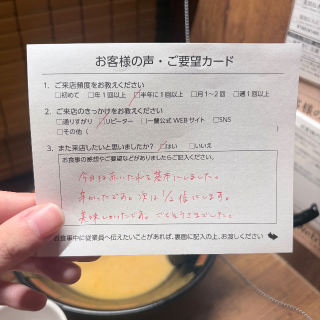 お客様の声・ご要望カード
1. ご来店頻度をお教えください
□初めて □年1回以上 □半年に1回以上 □月1〜2回 □週1回以上
2. ご来店のきっかけをお教えください
□通りすがり □リピーター □一蘭公式WEBサイト □SNS
□その他（ ）
3. また来店したいと思いましたか? □はい □いいえ
お食事の感想やご要望などがありましたらご記入ください。
今日は赤いたれを基本にしました。
辛かったです。次は1/2倍にします。
美味しかったです。ごちそうさまでした。
お食事中に従業員へ伝えたいことがあれば、裏面に記入の上、お渡しください